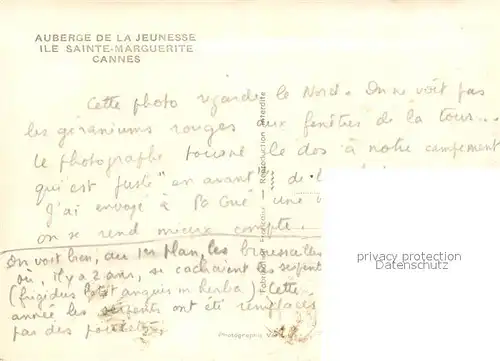 AUBERGE DE LA JEUNESSE
ILE SAINTE-MARGUERITE
CANNES
Cette photo regarde le Nord. On ne voit pas
les géraniums rouges aux fenêtres de la tour...
le photographe tourne le dos à notre campement
qui est juste "en avant" de la
J'ai envoyé à une
on se rend mieux compte.
On voit bien, au 1er plan, les broussailles
où, il y a 2 ans, se cachaient les serpents
(frigidus anguis in herba) Cette
année les serpents ont été remplacés
pas des
Fabrication Française - Reproduction Interdite
Photographie
privacy protection
Datenschutz